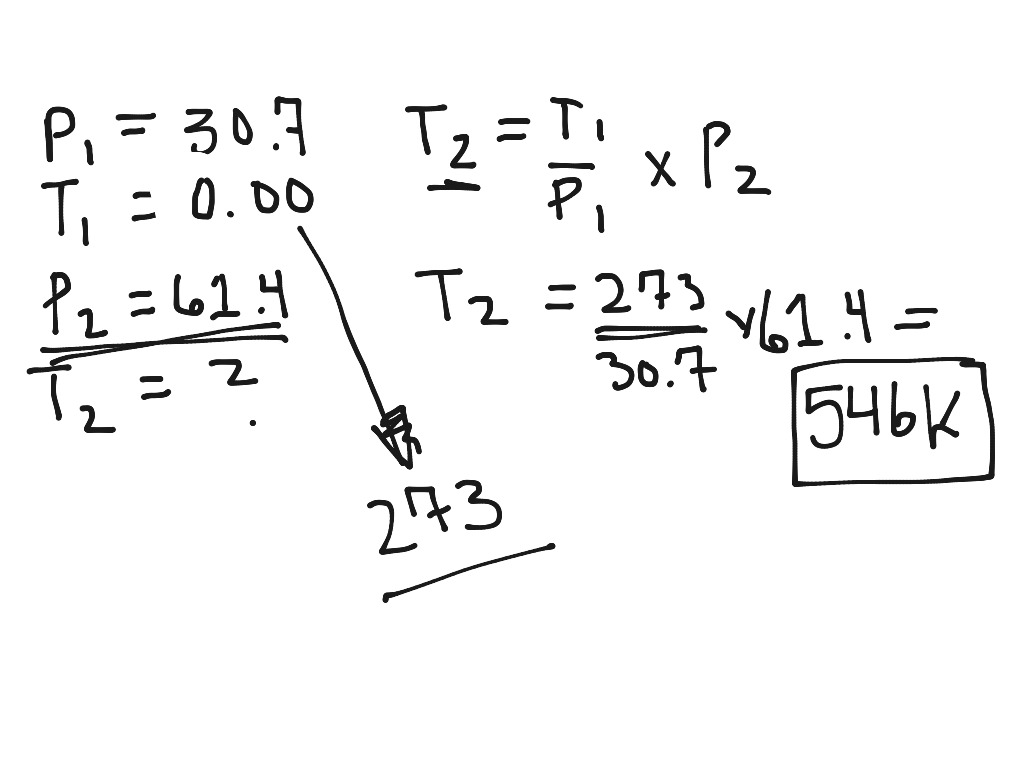 P₁ = 30.7
T₁ = 0.00
P₂ = 61.4
T₂ = ?
273
T₂ = T₁/P₁ x P₂
T₂ = 273/30.7 x 61.4 =
546K